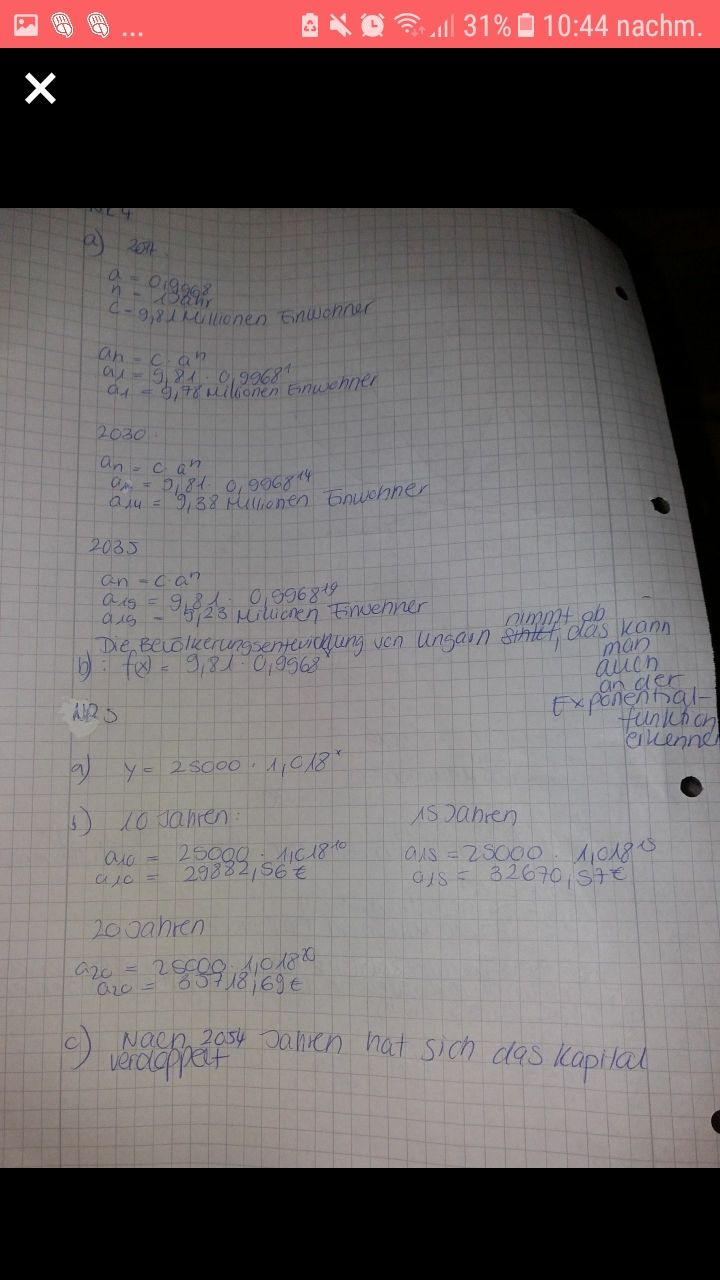 ... 31% 10:44 nachm.
Nr 4
a) 2017
a = 0,9968
n = 1 Jahr
c = 9,81 Millionen Einwohner
an = c · aⁿ
a1 = 9,81 · 0,9968¹
a1 = 9,78 Millionen Einwohner
2030
an = c · aⁿ
a14 = 9,81 · 0,9968¹⁴
a14 = 9,38 Millionen Einwohner
2035
an = c · aⁿ
a19 = 9,81 · 0,9968¹⁹
a19 = 9,23 Millionen Einwohner
Die Bevölkerungsentwicklung von Ungarn sinkt, nimmt ab das kann
man
auch
an der
Exponential-
funktion
erkennen
b) : f(x) = 9,81 · 0,9968ˣ
NR 5
a) y = 25000 · 1,018ˣ
b) 10 Jahren:
a10 = 25000 · 1,018¹⁰
a10 = 29882,56 €
15 Jahren
a15 = 25000 · 1,018¹⁵
a15 = 32670,57 €
20 Jahren
a20 = 25000 · 1,018²⁰
a20 = 35718,69 €
c) Nach 2054 Jahren hat sich das Kapital
verdoppelt